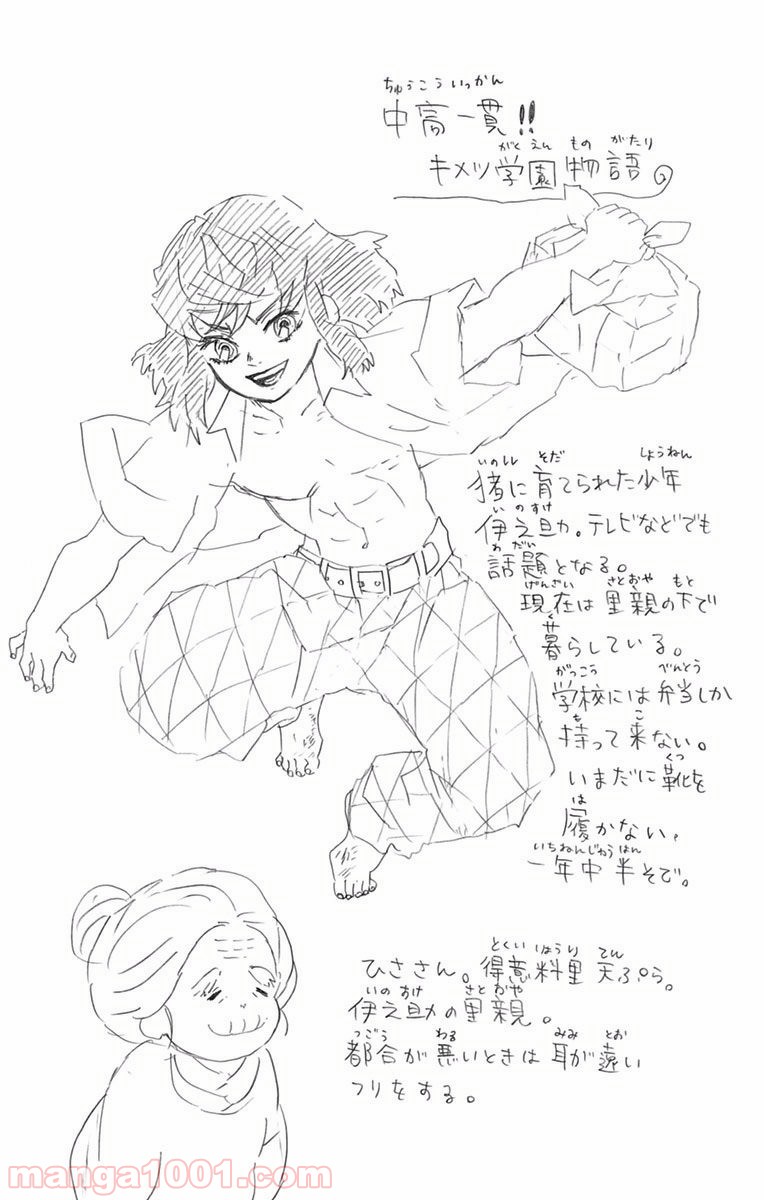 ちゅうこういっかん
中高一貫!!
がくえんものがたり
キメツ学園物語
いのししそだしょうねん
猪に育てられた少年
いのすけ
伊之助。テレビなどでも
わだい
話題となる。
げんざいさとおやもと
現在は里親の下で
く
暮らしている。
がっこうべんとう
学校には弁当しか
もこ
持って来ない。
くつ
いまだに靴を
は
履かない。
いちねんじゅうはん
一年中半そで。
とくいりょうりてん
ひささん。得意料理天ぷら。
いのすけさとおや
伊之助の里親。
つごうわるみみとお
都合が悪いときは耳が遠い
フリをする。
manga1001.com